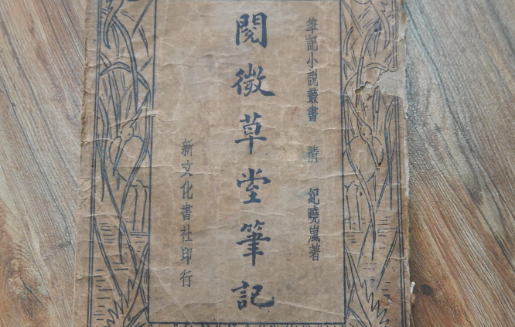 筆記小說叢書 清 紀曉嵐著
閱微草堂筆記
新文化書社印行